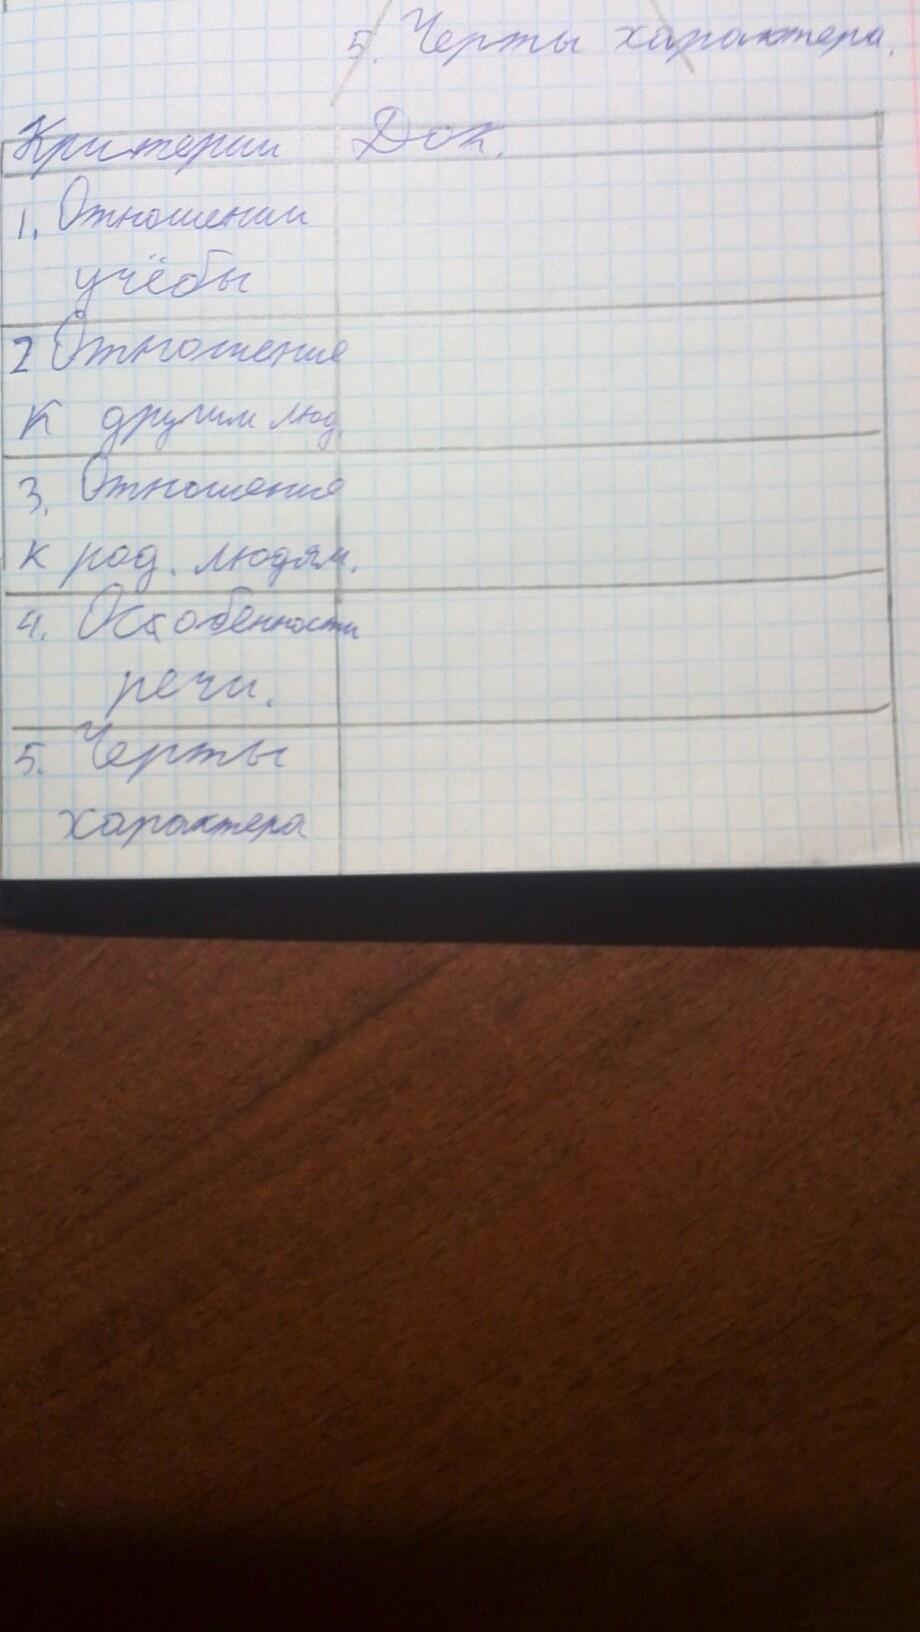 5. Черты характера.
Критерии Док.
1. Отношении
учёбы
2 Отношение
к другим люд.
3. Отношение
к род. людям.
4. Особенности
речи.
5. Черты
характера